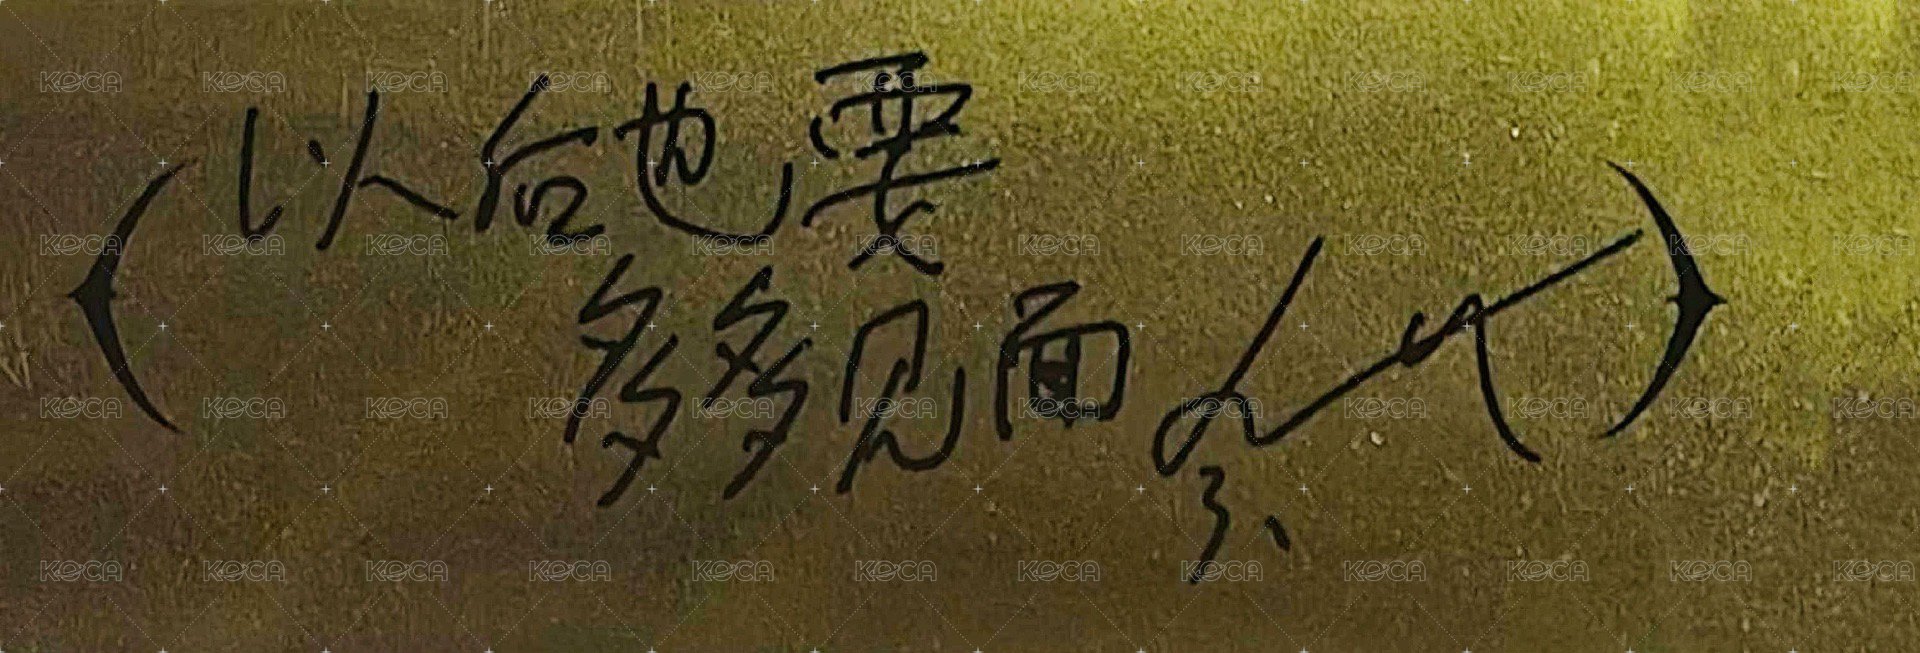 (以后也要
多多见面)